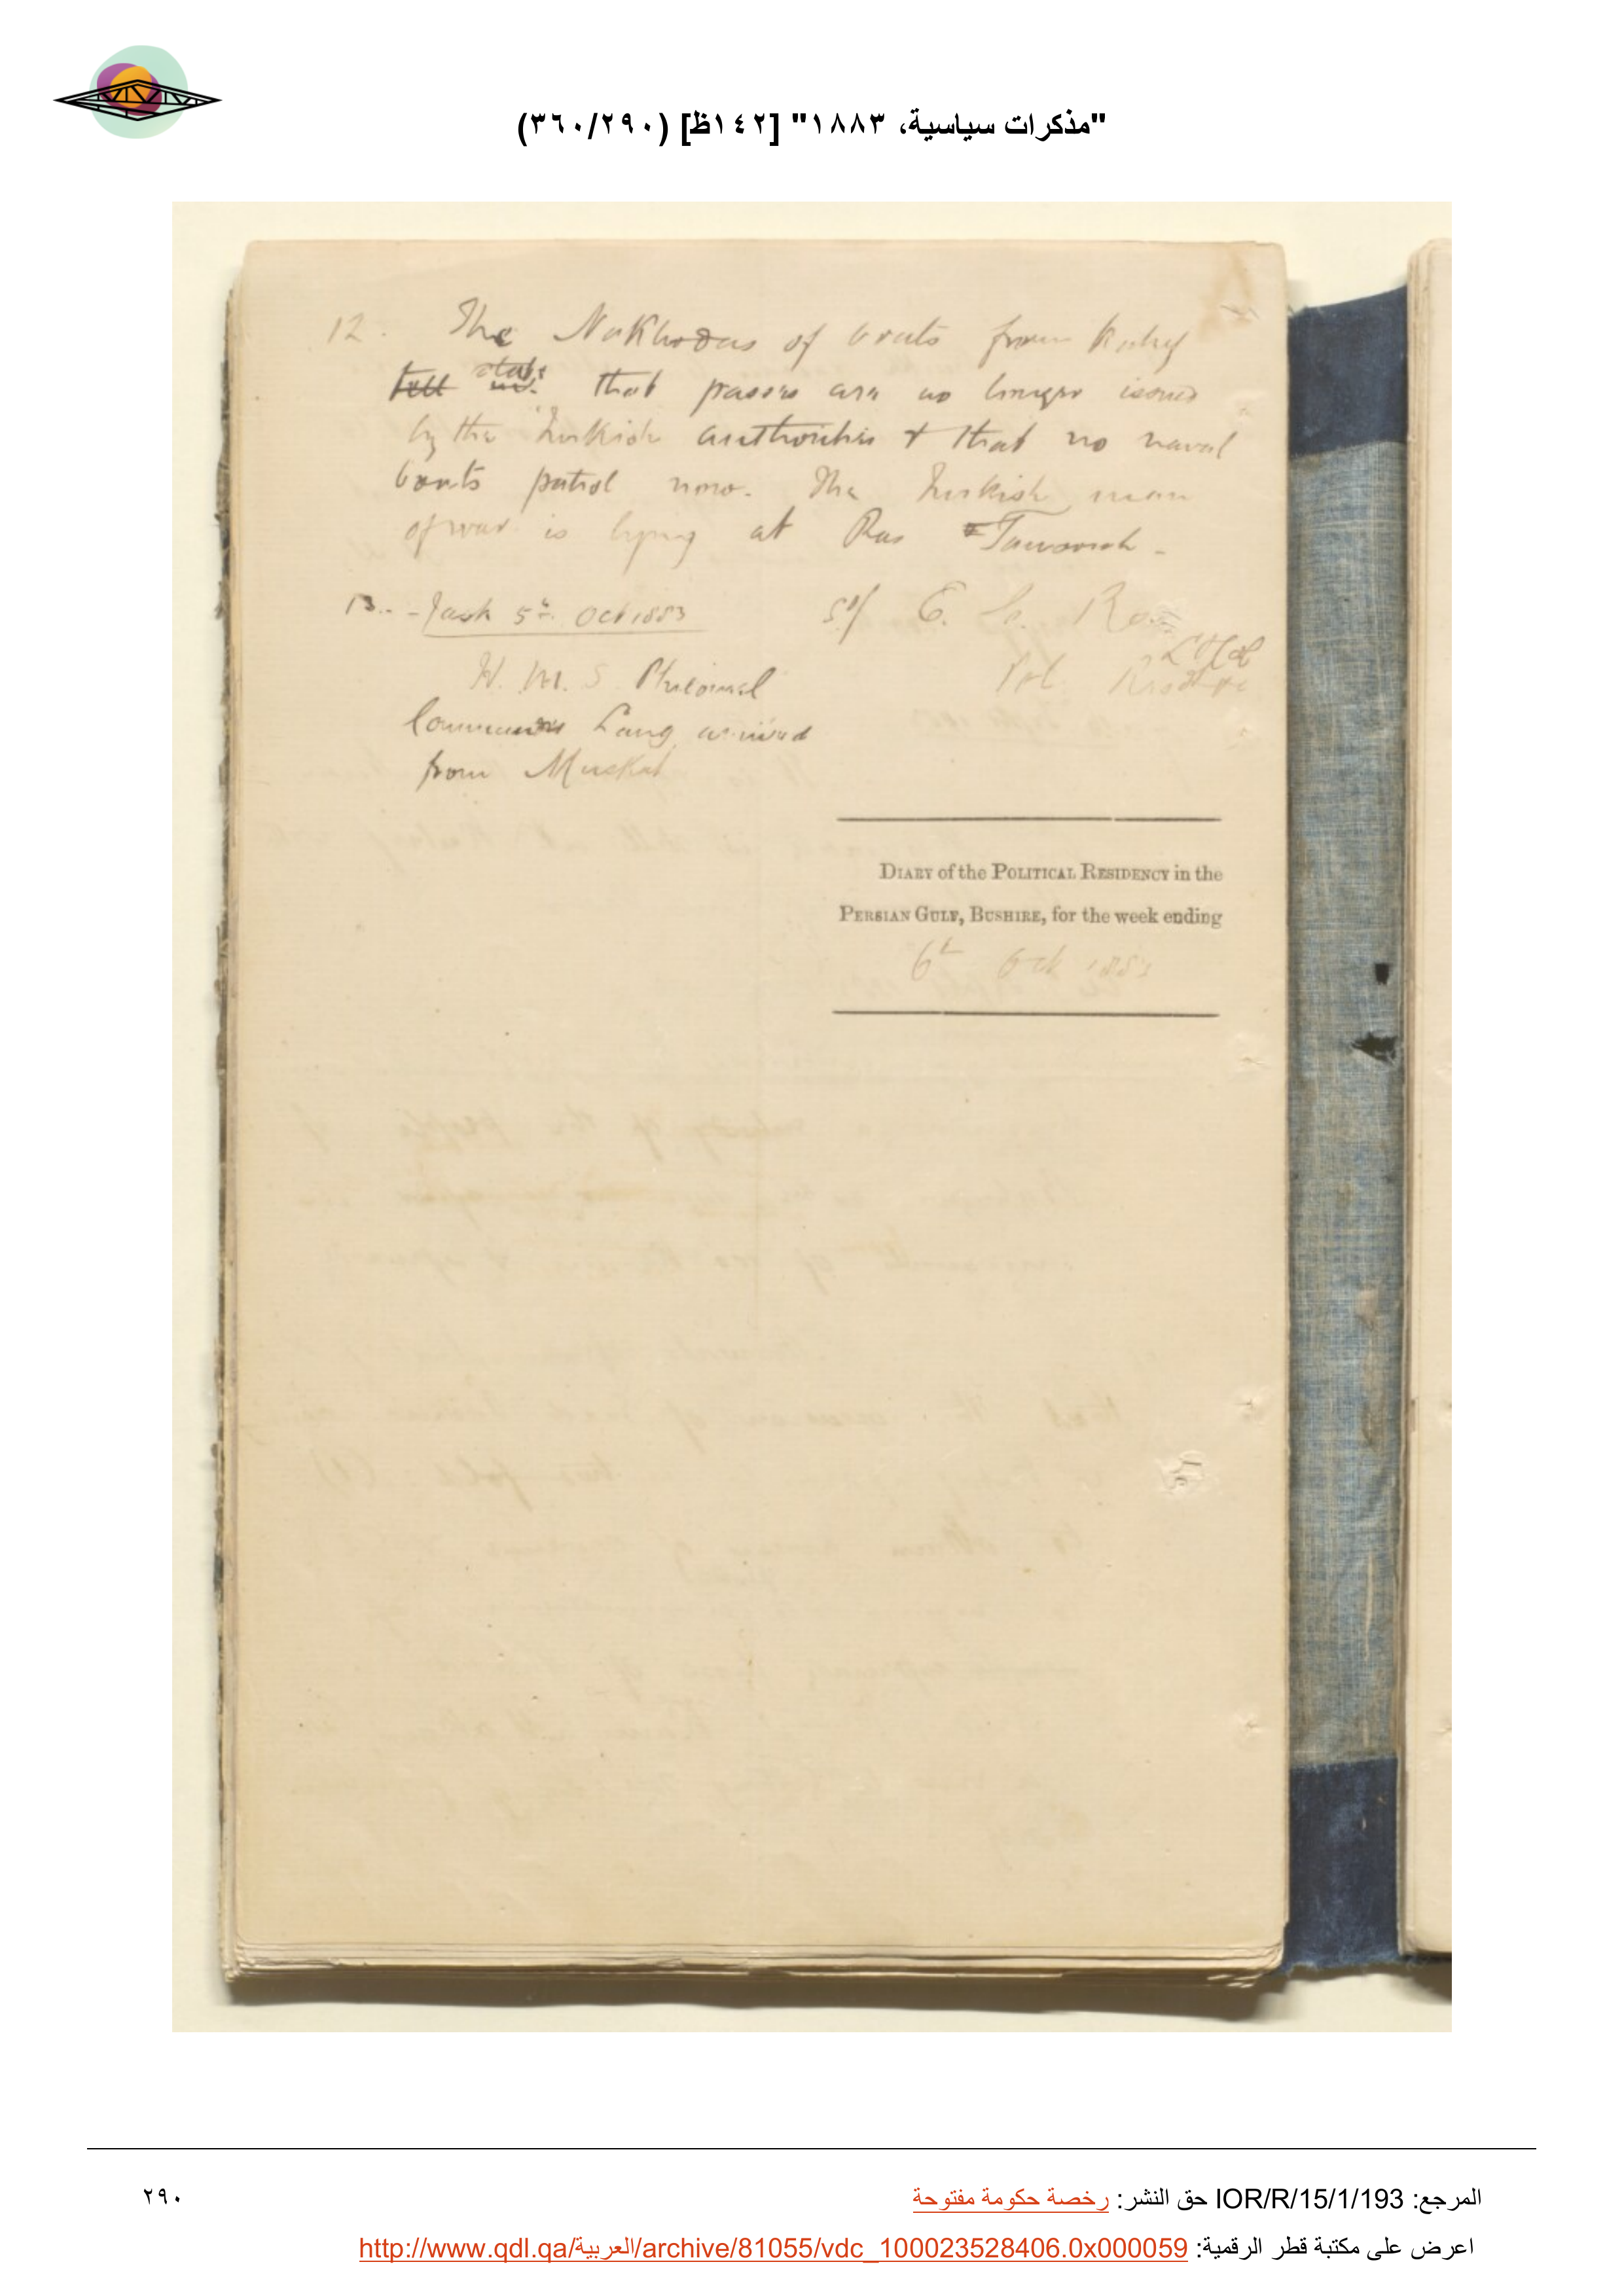 "مذكرات سياسية، ١٨٨٣" [١٤٢ظ] (٣٦٠/٢٩٠)
12. The Nakhodas of boats from
tell state that passes are no longer issued
by the Turkish authorities & that no naval
boats patrol now. The Turkish man
of war is lying at Ras Tanoorah -
13. - Jask 5th Oct 1883
Sd/ E. C. Ross
Lt Col
Pol.
H. M. S. Philomel
Commander Lang arrived
from Muskat
DIARY of the POLITICAL RESIDENCY in the
PERSIAN GULF, BUSHIRE, for the week ending
6th Oct 1883
المرجع: IOR/R/15/1/193 حق النشر: رخصة حكومة مفتوحة
٢٩٠
اعرض على مكتبة قطر الرقمية: http://www.qdl.qa/العربية/archive/81055/vdc_100023528406.0x000059